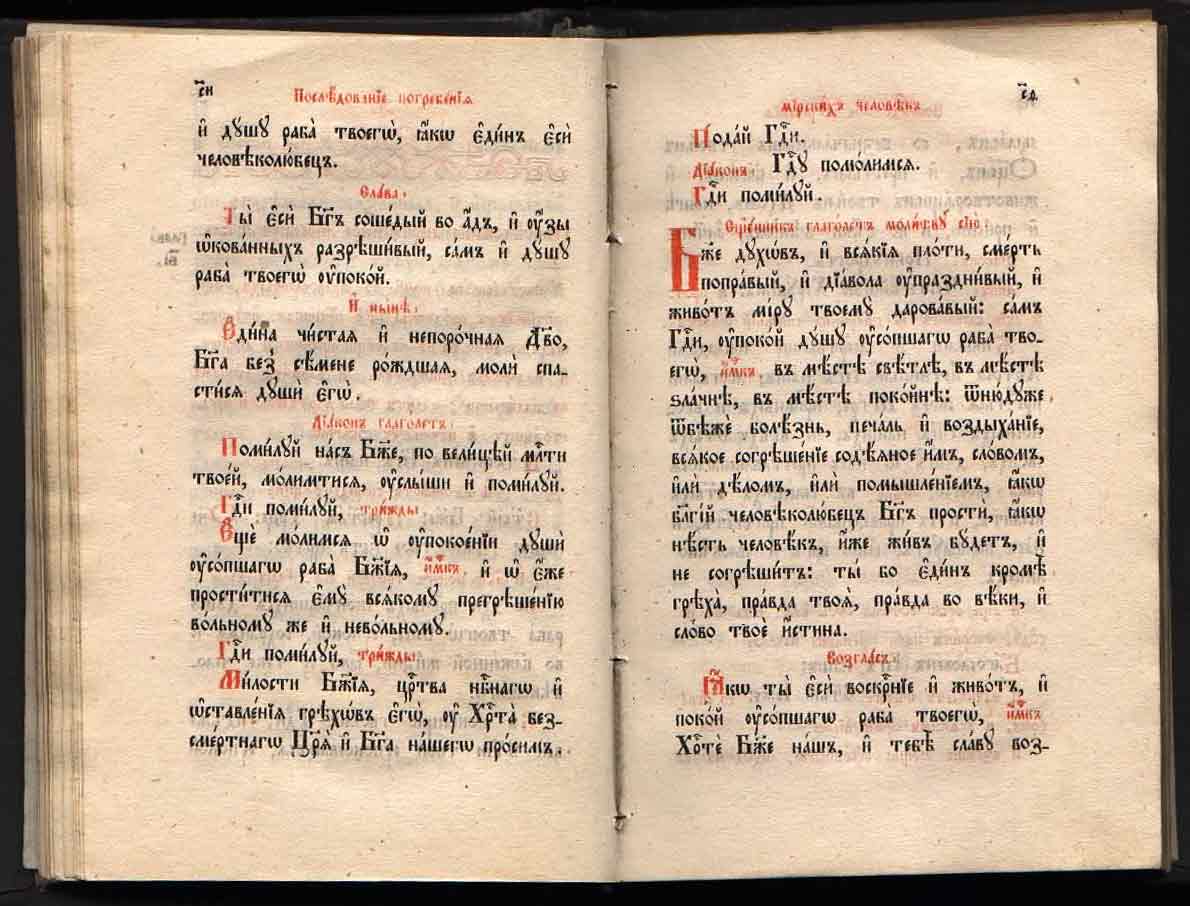 си
Послѣ́дованїе погребе́нїѧ
и҆ дꙋ́шꙋ раба̀ твоегѡ̀, ꙗ҆́кѡ є҆ди́нъ є҆сѝ
человѣколю́бецъ.
Сла́ва:
Ты̀ є҆сѝ Бг҃ъ соше́дый во а҆́дъ, и҆ ᲂу҆́зы
ѡ҆кова́нныхъ разрѣши́вый, са́мъ и҆ дꙋ́шꙋ
раба̀ твоегѡ̀ ᲂу҆поко́й.
И҆ ны́нѣ:
Е҆ди́на чи́стаѧ и҆ непоро́чнаѧ Дв҃о,
Бг҃а без̾ сѣ́мене ро́ждшаѧ, молѝ спа-
сти́сѧ дꙋшѝ є҆гѡ̀.
Дїа́конъ глаго́летъ:
Поми́лꙋй на́съ Бж҃е, по вели́цѣй мл҃ти
твое́й, мо́лимтисѧ, ᲂу҆слы́ши и҆ поми́лꙋй.
Гдⷭ҇и поми́лꙋй, три́жды
Е҆щѐ мо́лимсѧ ѡ҆ ᲂу҆покое́нїи дꙋшѝ
ᲂу҆со́пшагѡ раба̀ Бж҃їѧ, и҆́мкъ, и҆ ѡ҆ є҆́же
прости́тисѧ є҆мꙋ̀ всѧ́комꙋ прегрѣше́нїю
во́льномꙋ же и҆ нево́льномꙋ.
Гдⷭ҇и поми́лꙋй, три́жды
Ми́лости Бж҃їѧ, црⷭ҇тва нбⷭ҇нагѡ и҆
ѡ҆ставле́нїѧ грѣхѡ́въ є҆гѡ̀, ᲂу҆ Хрⷭ҇та̀ без-
сме́ртнагѡ Цр҃ѧ̀ и҆ Бг҃а на́шегѡ про́симъ.
сѳ
мїрски́хъ человѣ́къ
Пода́й Гдⷭ҇и.
Дїа́конъ Гдⷭ҇ꙋ помо́лимсѧ.
Гдⷭ҇и поми́лꙋй.
Сщ҃е́нникъ глаго́летъ моли́твꙋ сїю̀
Бж҃е дꙋхѡ́въ, и҆ всѧ́кїѧ пло́ти, сме́рть
попра́вый, и҆ дїа́вола ᲂу҆праздни́вый, и҆
живо́тъ мі́рꙋ твоемꙋ̀ дарова́вый: са́мъ
Гдⷭ҇и, ᲂу҆поко́й дꙋ́шꙋ ᲂу҆со́пшагѡ раба̀ тво-
егѡ̀, и҆́мкъ, въ мѣ́стѣ свѣ́тлѣ, въ мѣ́стѣ
ѕла́чнѣ, въ мѣ́стѣ поко́йнѣ: ѿню́дꙋже
ѿбѣжѐ болѣ́знь, печа́ль и҆ воздыха́нїе,
всѧ́кое согрѣше́нїе содѣ́ѧное и҆́мъ, сло́вомъ,
и҆лѝ дѣ́ломъ, и҆лѝ помышле́нїемъ, ꙗ҆́кѡ
бл҃гі́й человѣколю́бецъ Бг҃ъ простѝ, ꙗ҆́кѡ
нѣ́сть человѣ́къ, и҆́же жи́въ бꙋ́детъ, и҆
не согрѣши́тъ: ты́ бо є҆ди́нъ кромѣ̀
грѣха̀, пра́вда твоѧ̀, пра́вда во вѣ́ки, и҆
сло́во твоѐ и҆́стина.
Во́згласъ:
Ꙗ҆́кѡ ты̀ є҆сѝ воскрⷭ҇нїе и҆ живо́тъ, и҆
поко́й ᲂу҆со́пшагѡ раба̀ твоегѡ̀, и҆́мкъ
Хрⷭ҇тѐ Бж҃е на́шъ, и҆ тебѣ̀ сла́вꙋ воз-